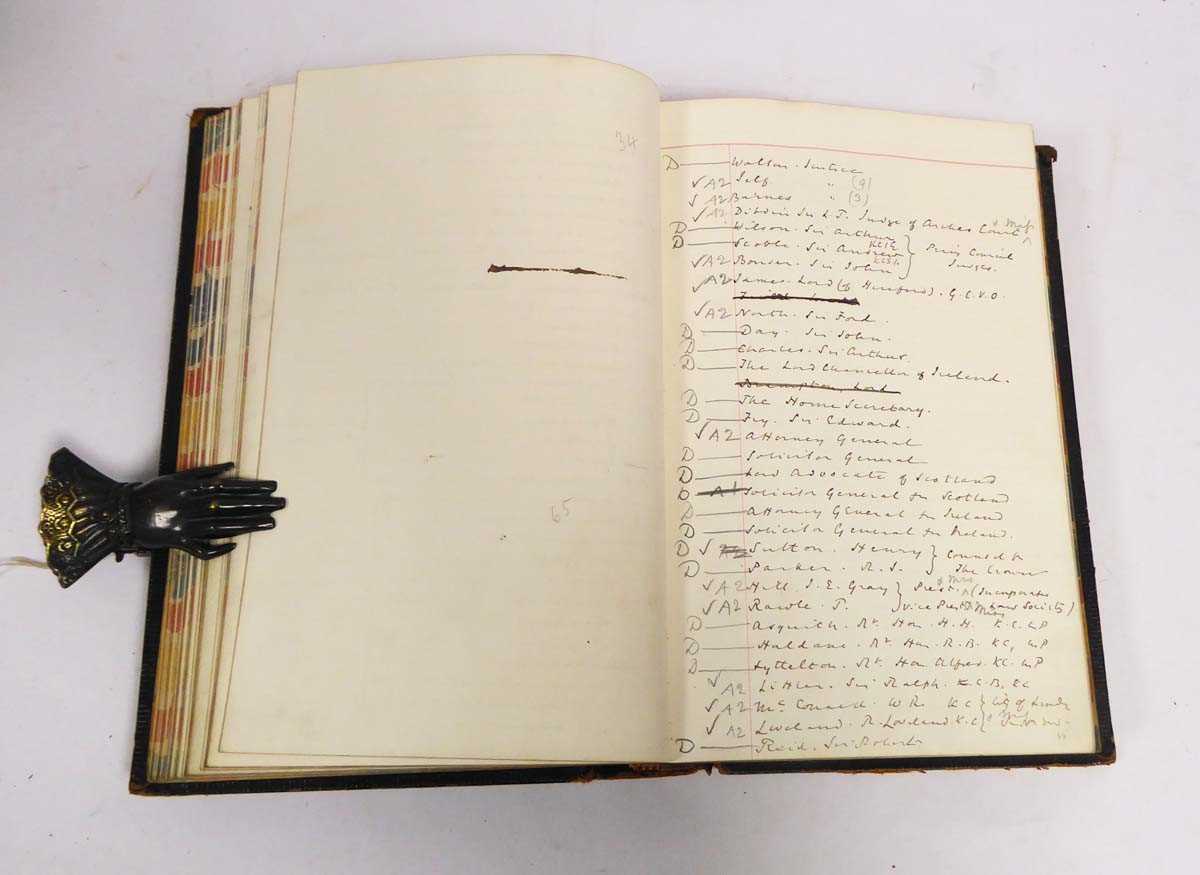 34
65
D Walton. Justice
√ A2 Self. " (9)
√ A2 Barnes " (3)
√ A2 Dibdin Sir L.T. Judge of Arches Court & Mrs
D Wilson. Sir Arthur } Privy Council
D Scoble. Sir Andrew KCSI } Judges.
√ A2 Bonser. Sir John
√ A2 James. Lord (of Hereford). G.C.V.O.
√ A2 North. Sir Ford.
D Day. Sir John.
D Charles. Sir Arthur.
D The Lord Chancellor of Ireland.
Brampton, Lord
D The Home Secretary.
D Fry. Sir Edward.
√ A2 Attorney General
D Solicitor General
D Lord Advocate of Scotland
D A1 Solicitor General for Scotland
D Attorney General for Ireland
D Solicitor General for Ireland.
D √ A2 Sutton. Henry } Counsel to
D Parker. R.J. } The Crown
√ A2 Hill. J. E. Gray } Prest. & Mrs (Incorporated
√ A2 Rawle. T. } Vice Prest & Mrs Law Society)
D Asquith. Rt. Hon. H. H. K.C. MP
D Haldane. Rt. Hon. R. B. KC, MP
D Lyttelton. Rt. Hon Alfred. KC. MP
√ A2 Littler. Sir Ralph. K.C.B, KC
√ A2 McConnell. W R. KC } City of London
√ A2 Loveland. R. Loveland K.C }
D Reid. Sir Robert